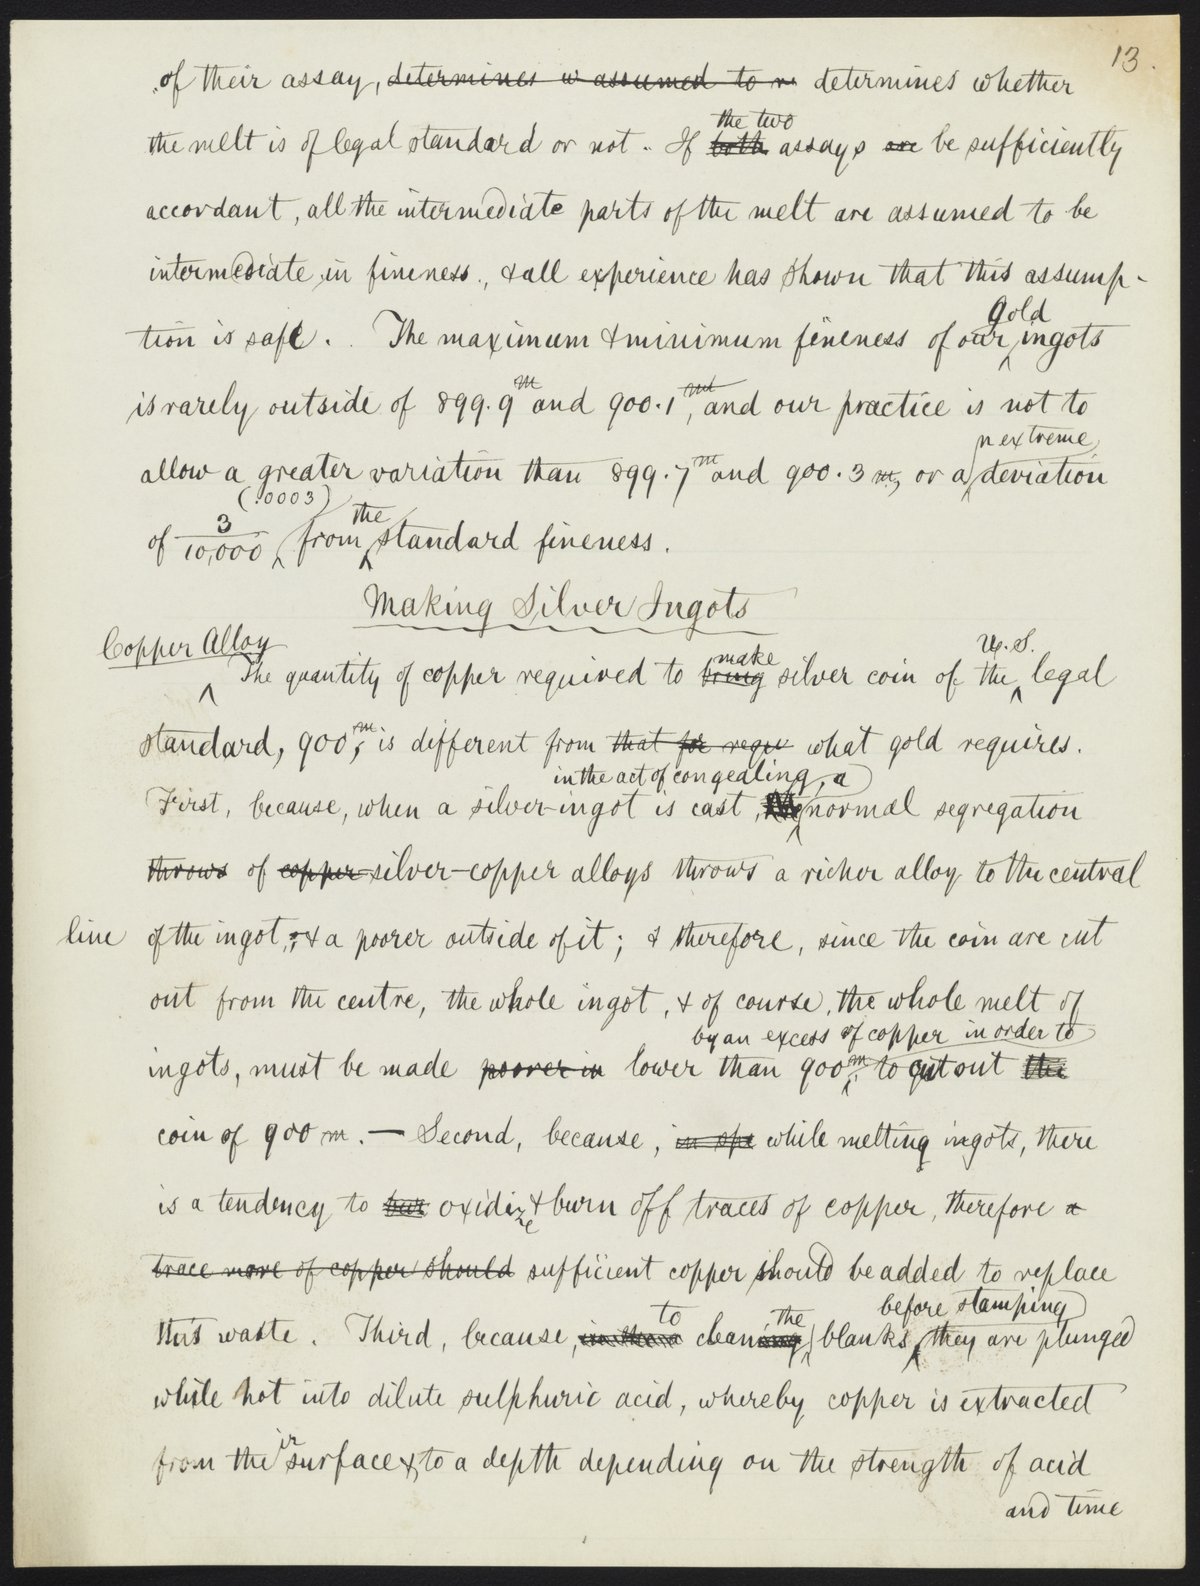 13.
of their assay, determines w assumed to r determines whether
the two
the melt is of legal standard or not. If both assays are be sufficiently
accordant, all the intermediate parts of the melt are assumed to be
intermediate in fineness, & all experience has shown that this assump-
gold
tion is safe. The maximum & minimum fineness of our ingots
is rarely outside of 899.9 m and 900.1 mt, and our practice is not to
n extreme
allow a greater variation than 899.7 m and 900.3 m, or a deviation
(.0003) the
of 3/10,000 from standard fineness.
Making Silver Ingots
Copper Alloy
make U.S.
The quantity of copper required to bring silver coin of the legal
standard, 900 m, is different from that for requ what gold requires.
in the act of congealing, a
First, because, when a silver-ingot is cast, normal segregation
throws of copper silver-copper alloys throws a richer alloy to the central
line of the ingot, & a poorer outside of it; & therefore, since the coin are cut
out from the centre, the whole ingot, & of course, the whole melt of
by an excess of copper in order to
ingots, must be made poorer in lower than 900 m, to cut out the
coin of 900 m. — Second, because, in spe while melting ingots, there
is a tendency to bur oxidize & burn off traces of copper, therefore a
trace more of copper should sufficient copper should be added to replace
to the before stamping
this waste. Third, because, cleaning blanks, they are plunged
while hot into dilute sulphuric acid, whereby copper is extracted
from their surface & to a depth depending on the strength of acid
and time